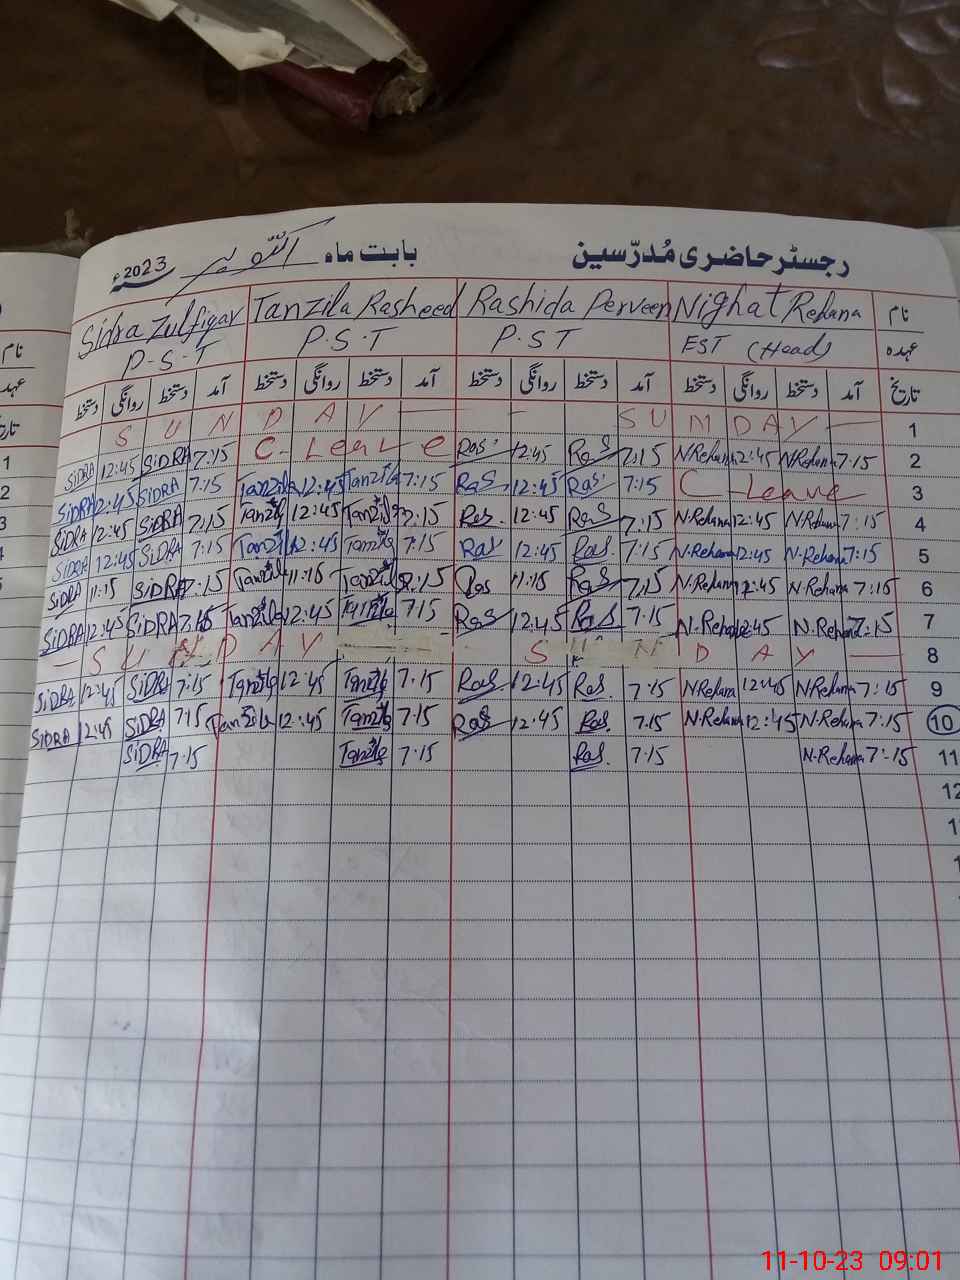 رجسٹر حاضری مُدرّسین بابت ماہ اکتوبر 2023ء
نام Nighat Rehana Rashida Perveen Tanzila Rasheed Sidra Zulfiqar
عہدہ EST (Head) P.S.T P.S.T P-S.T
تاریخ آمد دستخط روانگی دستخط آمد دستخط روانگی دستخط آمد دستخط روانگی دستخط آمد دستخط روانگی دستخط
S U N D A Y — — S U N D A Y — 1
SiDRA 12:45 SiDRA 7:15 C- Leave Ras. 12:45 Ras 7:15 N.Rehana 12:45 N.Rehana 7:15 2
SiDRA 12:45 SiDRA 7:15 Tanzila 12:45 Tanzila 7:15 Ras. 12:45 Ras. 7:15 C-Leave 3
SiDRA 12:45 SiDRA 7:15 Tanzila 12:45 Tanzila 7:15 Ras. 12:45 Ras 7:15 N.Rehana 12:45 N.Rehana 7:15 4
SiDRA 12:45 SiDRA 7:15 Tanzila 12:45 Tanzila 7:15 Ras 12:45 Ras. 7:15 N.Rehana 12:45 N.Rehana 7:15 5
SiDRA 11:15 SiDRA 7:15 Tanzila 11:15 Tanzila 7:15 Ras 11:15 Ras 7:15 N.Rehana 12:45 N.Rehana 7:15 6
SiDRA 12:45 SiDRA 7:15 Tanzila 12:45 Tanzila 7:15 Ras 12:45 Ras. 7:15 N.Rehana 12:45 N.Rehana 7:15 7
— S U N D A Y — — S U N D A Y — 8
SiDRA 12:45 SiDRA 7:15 Tanzila 12:45 Tanzila 7:15 Ras. 12:45 Ras. 7:15 N.Rehana 12:45 N.Rehana 7:15 9
SiDRA 12:45 SiDRA 7:15 Tanzila 12:45 Tanzila 7:15 Ras 12:45 Ras. 7:15 N.Rehana 12:45 N.Rehana 7:15 10
SiDRA 7:15 Tanzila 7:15 Ras. 7:15 N.Rehana 7:15 11
12
نام
عہدہ
1
2
3
11-10-23 09:01